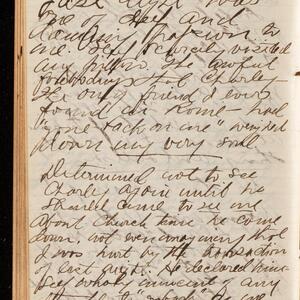 Last night was
one of deep and
to
me. Sleep scarcely visited
my pillow. The awful
foreboding that Charley
the only friend I ever
found at home had
"gone back on me" weighed
down my very soul.
Determined not to see
Charley again until he
should come to see me
About Church time he came
down, not even imagining that
I was hurt by the transaction
of last night. He declared him
self wholly innocent of any